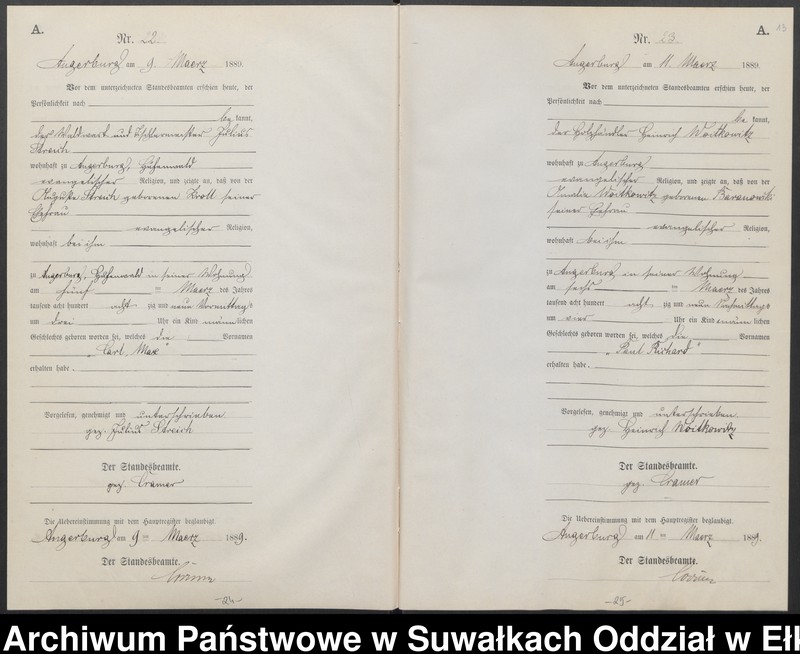 A.
Nr. 22.
Angerburg am 9. Maerz 1889.
Vor dem unterzeichneten Standesbeamten erschien heute, der
Persönlichkeit nach
be kannt,
der Waldwart und Tischlermeister Julius
Streich
wohnhaft zu Angerburg, Hufenwald
evangelischer Religion, und zeigte an, daß von der
Auguste Streich geborenen Kroll seiner
Ehefrau
evangelischer Religion,
wohnhaft bei ihm
zu Angerburg, Hufenwald in seiner Wohnung
am fünf ten Maerz des Jahres
tausend acht hundert acht zig und neun Vormittags
um drei Uhr ein Kind männlichen
Geschlechts geboren worden sei, welches die Vornamen
„Carl, Max"
erhalten habe.
Vorgelesen, genehmigt und unterschrieben
gez. Julius Streich
Der Standesbeamte.
gez. Cramer
Die Uebereinstimmung mit dem Hauptregister beglaubigt.
Angerburg am 9 ten Maerz 1889.
Der Standesbeamte.
-24-
A.
Nr. 23.
Angerburg am 11. Maerz 1889.
Vor dem unterzeichneten Standesbeamten erschien heute, der
Persönlichkeit nach
be kannt,
der Holzhändler Heinrich Woitkowitz
wohnhaft zu Angerburg
evangelischer Religion, und zeigte an, daß von der
Amalie Woitkowitz geborenen Baranowski
seiner Ehefrau
evangelischer Religion,
wohnhaft bei ihm
zu Angerburg in seiner Wohnung
am sechs ten Maerz des Jahres
tausend acht hundert acht zig und neun Nachmittags
um vier Uhr ein Kind männlichen
Geschlechts geboren worden sei, welches die Vornamen
„Paul Richard"
erhalten habe.
Vorgelesen, genehmigt und unterschrieben
gez. Heinrich Woitkowitz
Der Standesbeamte.
gez. Cramer
Die Uebereinstimmung mit dem Hauptregister beglaubigt.
Angerburg am 11 ten Maerz 1889.
Der Standesbeamte.
-25-
Archiwum Państwowe w Suwałkach Oddział w Ełk